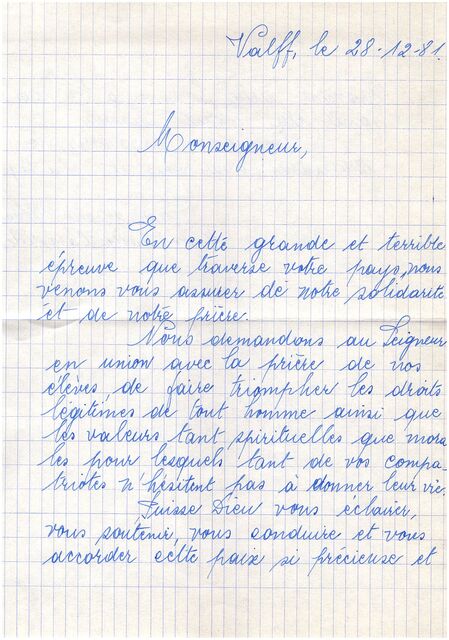 Valff, le 28-12-81.
Monseigneur,
En cette grande et terrible
épreuve que traverse votre pays, nous
venons vous assurer de notre solidarité
et de notre prière.
Nous demandons au Seigneur
en union avec la prière de nos
élèves, de faire triompher les droits
légitimes de tout homme ainsi que
les valeurs tant spirituelles que mora
les pour lesquels tant de vos compa
triotes n'hésitent pas à donner leur vie.
Puisse Dieu vous éclairer,
vous soutenir, vous conduire et vous
accorder cette paix si précieuse et